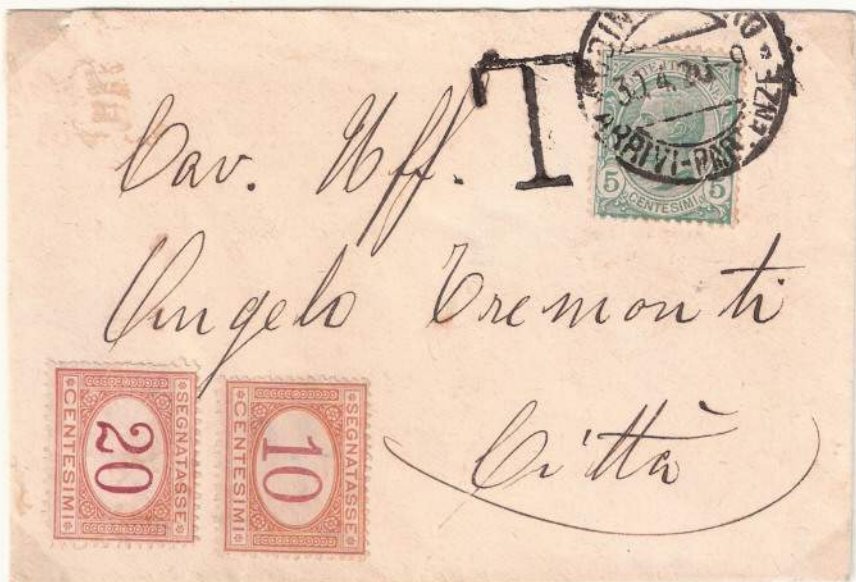 T
30.4.
ARRIVI-PARTENZE
5 5
CENTESIMI
Cav. Uff.
Angelo Tremonti
Città
SEGNATASSE
20
CENTESIMI
SEGNATASSE
10
CENTESIMI